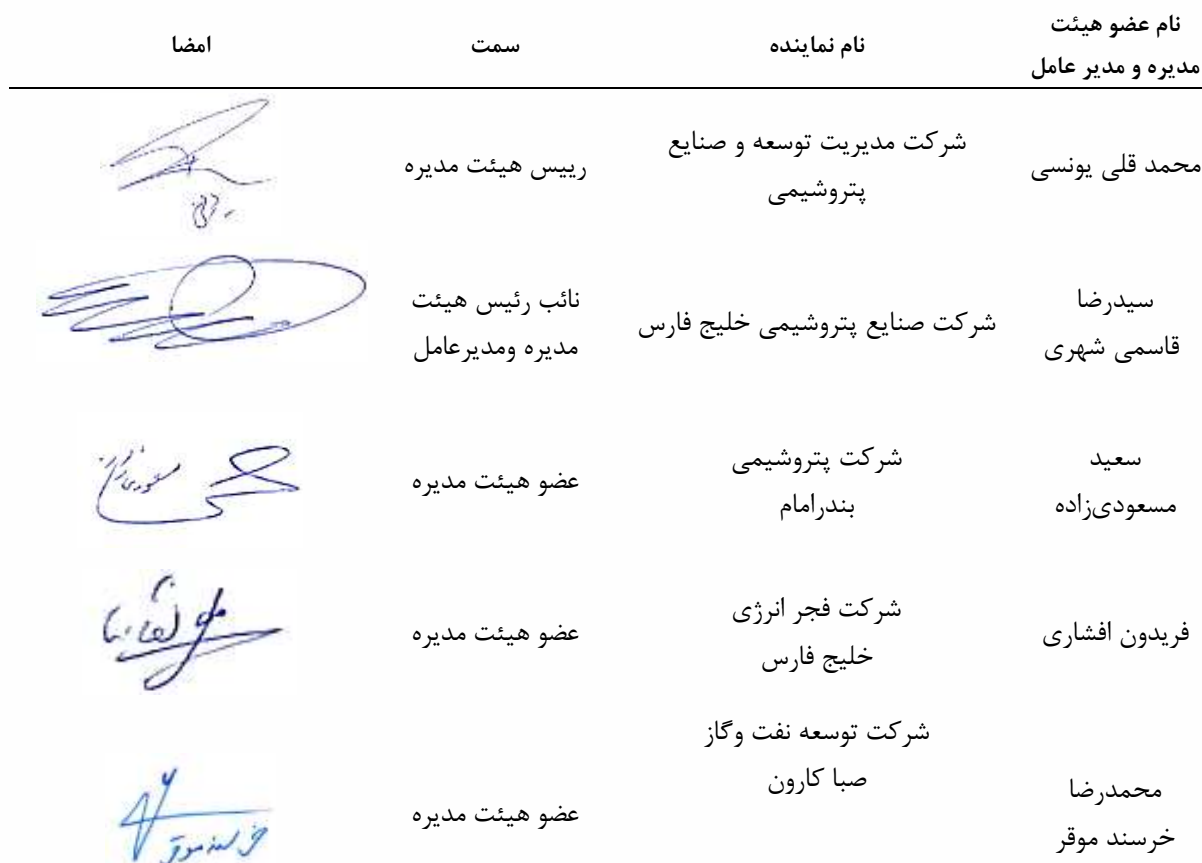 نام عضو هیئت
مدیره و مدیر عامل
نام نماینده
سمت
امضا
محمد قلی یونسی
شرکت مدیریت توسعه و صنایع
پتروشیمی
رییس هیئت مدیره
سیدرضا
قاسمی شهری
شرکت صنایع پتروشیمی خلیج فارس
نائب رئیس هیئت
مدیره ومدیرعامل
سعید
مسعودی‌زاده
شرکت پتروشیمی
بندرامام
عضو هیئت مدیره
فریدون افشاری
شرکت فجر انرژی
خلیج فارس
عضو هیئت مدیره
محمدرضا
خرسند موقر
شرکت توسعه نفت وگاز
صبا کارون
عضو هیئت مدیره